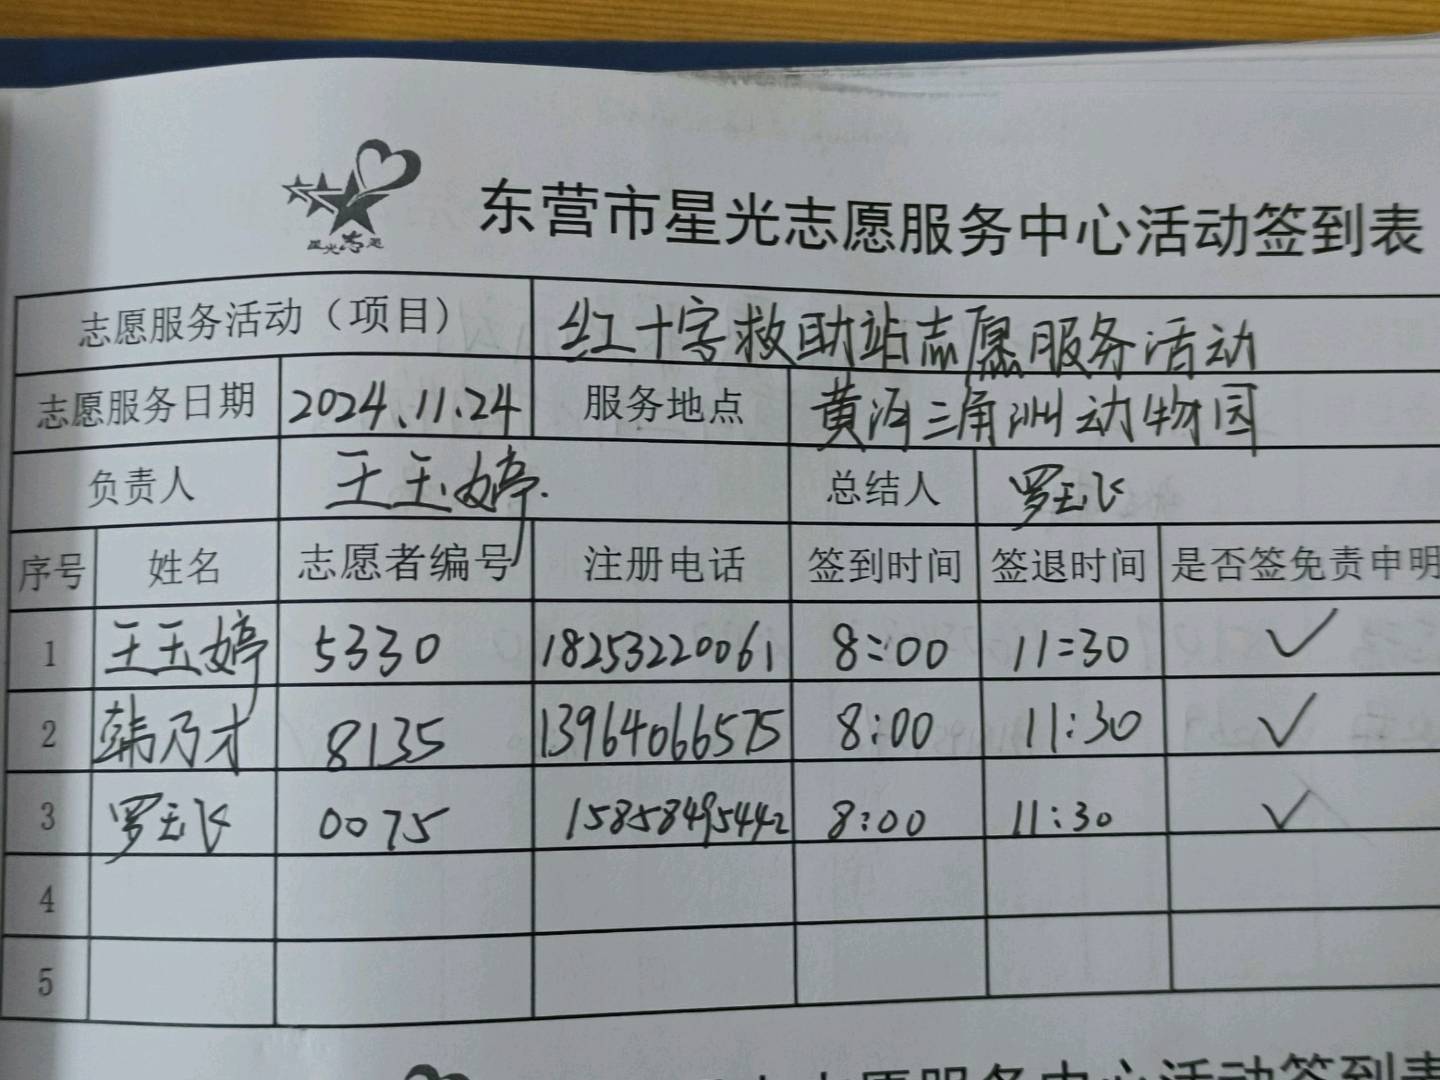 星光志愿
东营市星光志愿服务中心活动签到表
志愿服务活动（项目） 红十字救助站志愿服务活动
志愿服务日期 2024.11.24 服务地点 黄河三角洲动物园
负责人 王玉婷 总结人 罗玉飞
序号 姓名 志愿者编号 注册电话 签到时间 签退时间 是否签免责申明
1 王玉婷 5330 18253220061 8:00 11:30 ✓
2 韩乃才 8135 13964066575 8:00 11:30 ✓
3 罗玉飞 0075 15858495442 8:00 11:30 ✓
4
5
志愿服务中心活动签到表